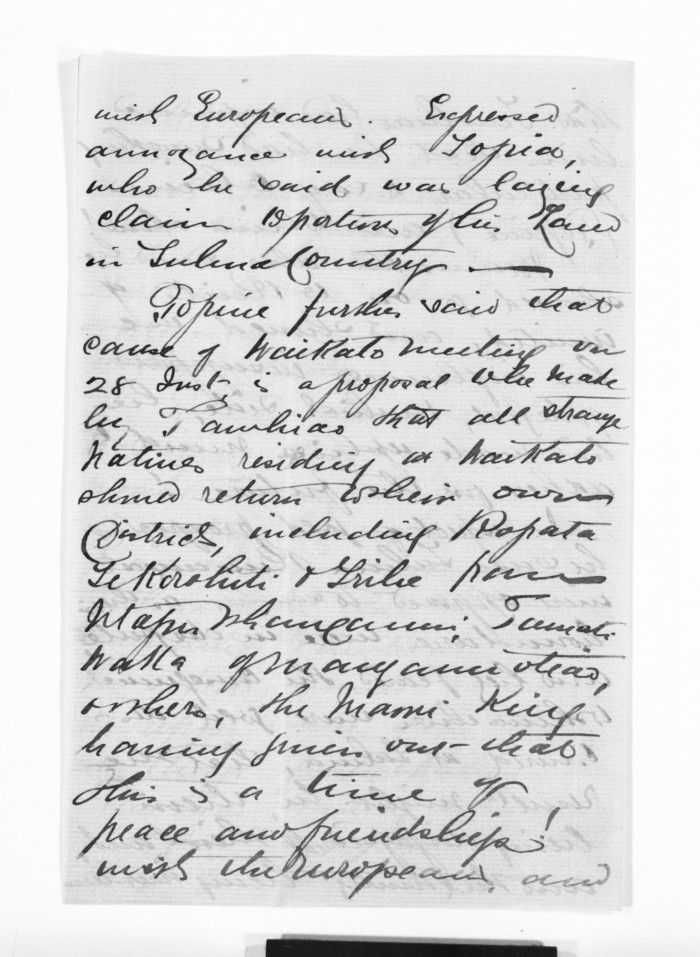 with Europeans. Expressed
annoyance with Topia,
who he said was laying
claim to portions of his Land
in Tuhua Country —
Topine further said that
cause of Waikato meeting on
28 Inst, is a proposal to be made
by Tawhiao that all strange
Natives residing at Waikato
should return to their own
Districts, including Ropata
& Tribe from
Whanganui, Tamati
Waka of
& others, the Maori King
having given out that
this is a time of
peace and friendship
with the Europeans, and